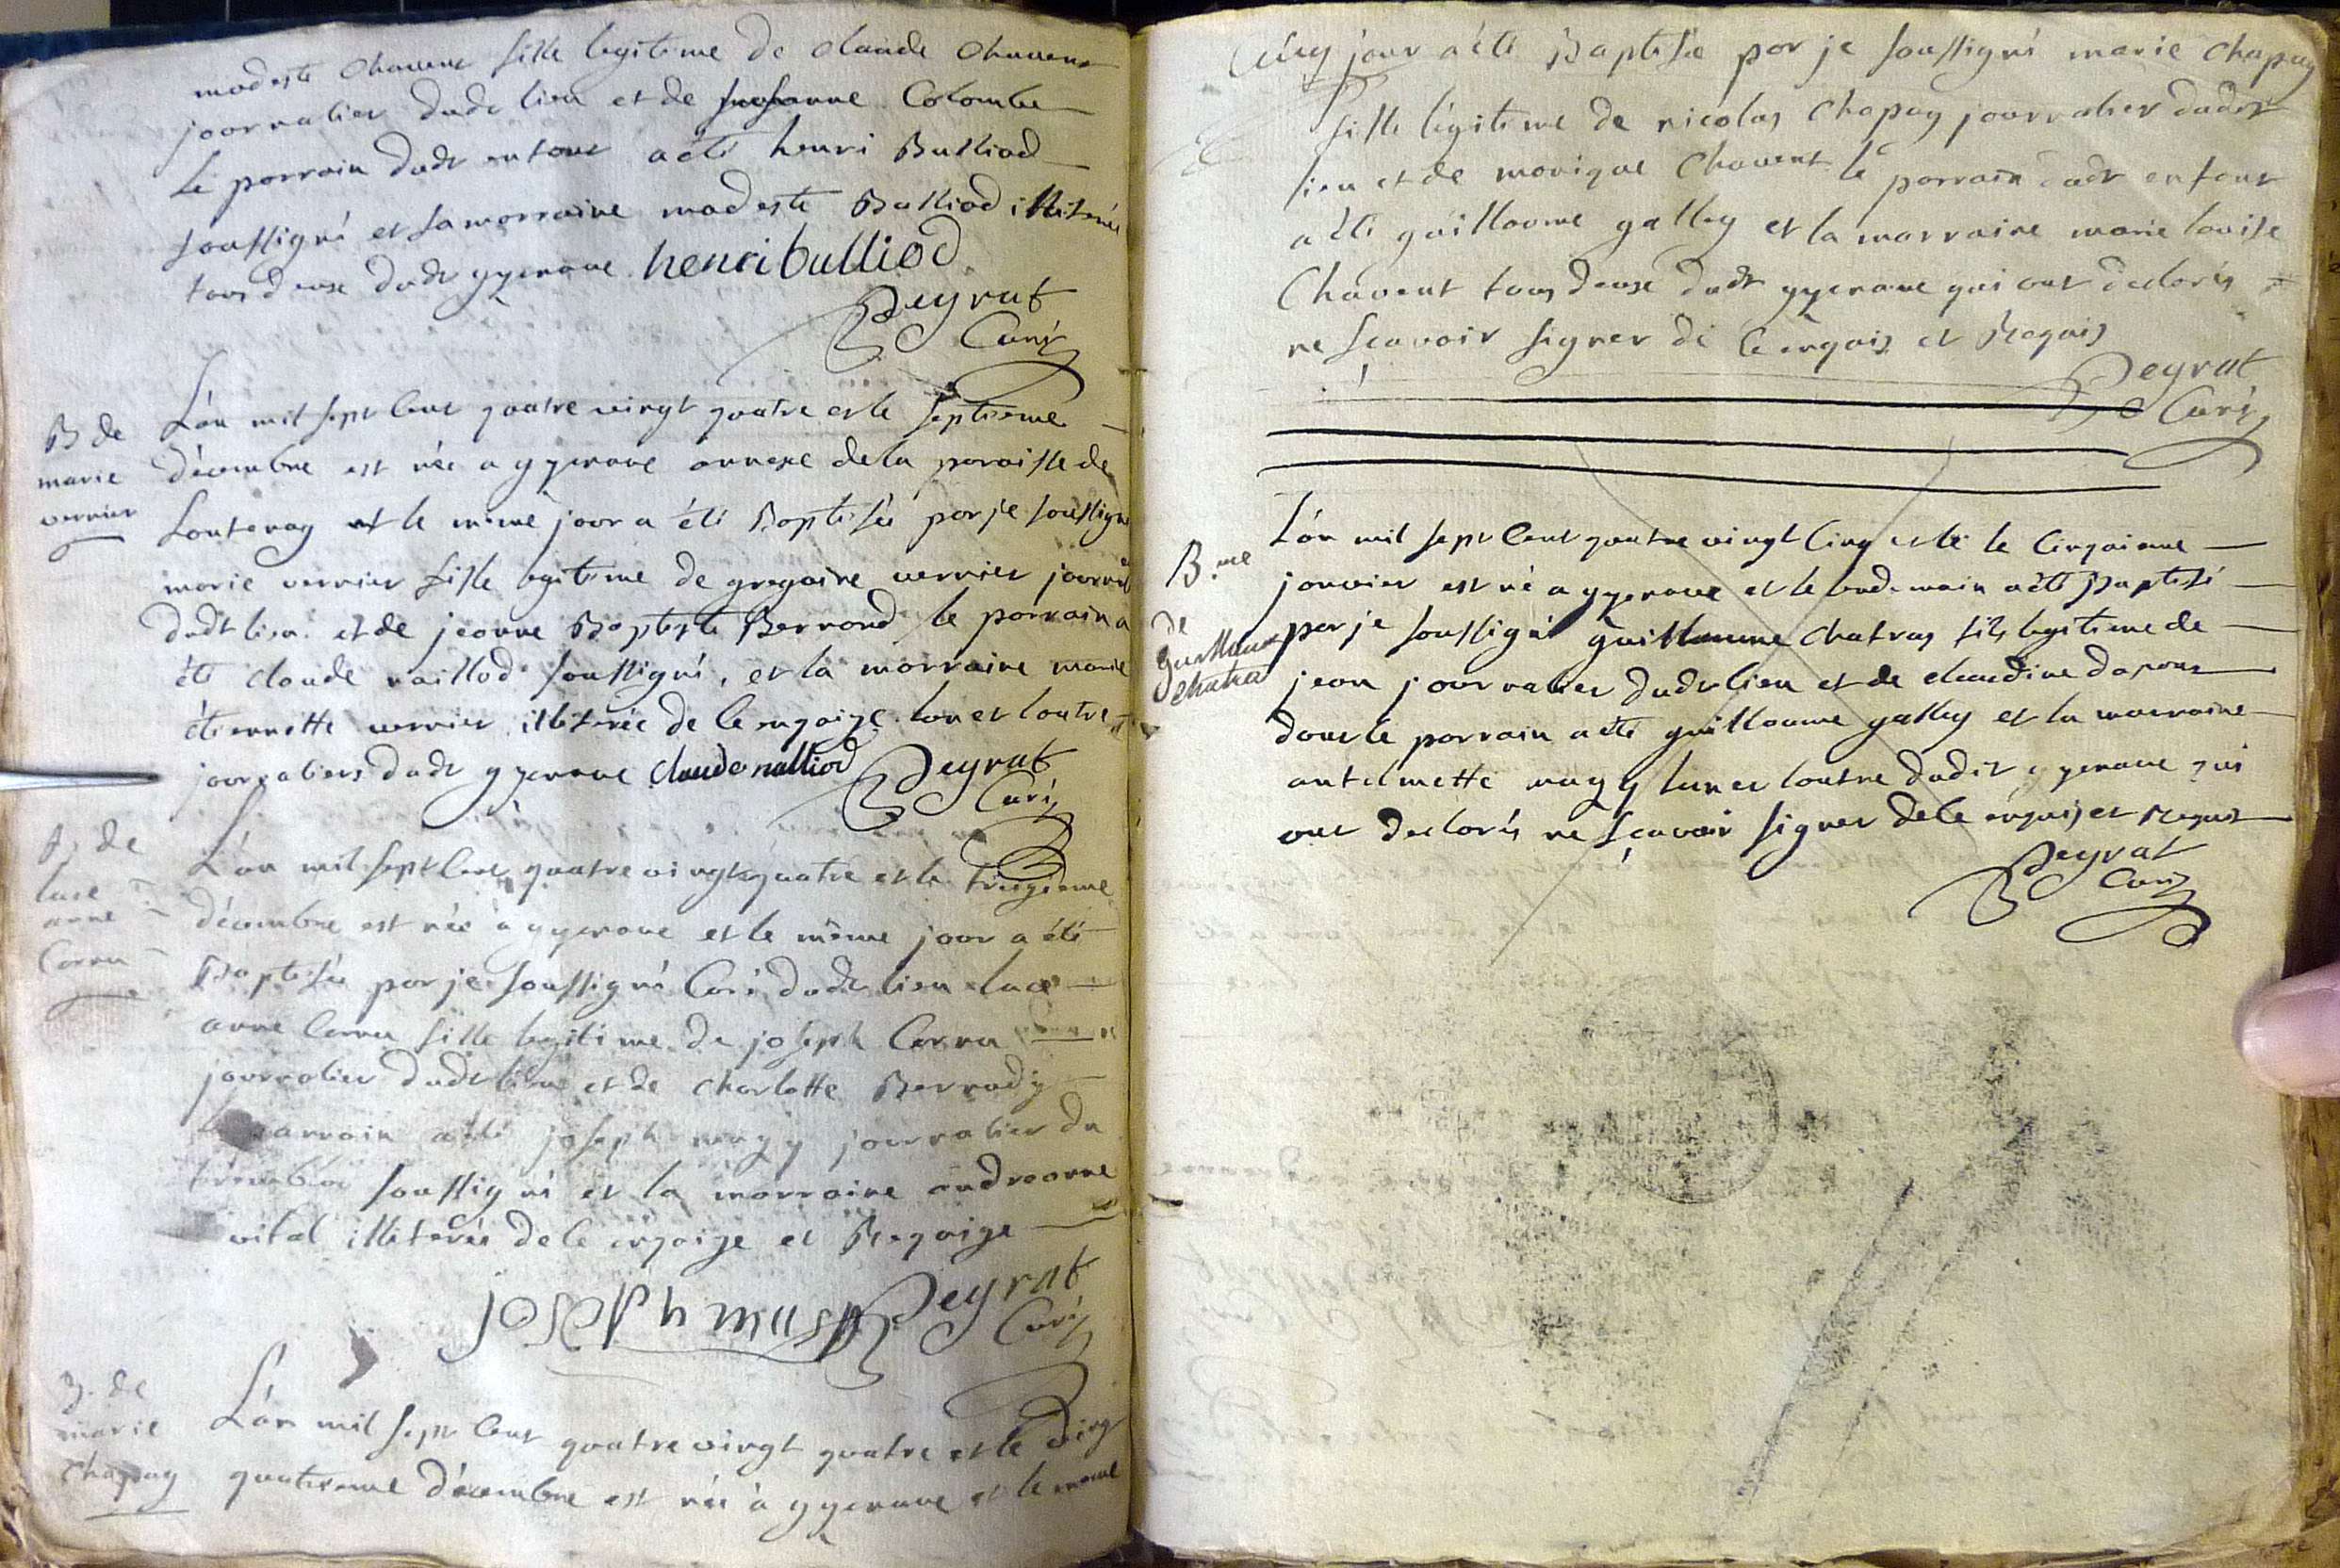 modeste chavent fille legitime de claude chavent
journalier dudt lieu et de susanne Colombe
le parrain dudt enfant a été henri Bulliod
soussigné et la marraine modeste Bulliod illiterée
tous deux dudt gyerane henri bulliod
Peyrat
Curé
B de
marie
vernier
L'an mil sept cent quatre vingt quatre et le septieme
décembre est née a gyerane annexe de la paroisse de
Lontenay et le même jour a été Baptisée par je soussigné
marie vernier fille legitime de gregoire vernier journal
dudt lieu et de jeanne Baptiste Berrand le parrain a
été claude nalliod soussigné, et la marraine marie
étiennette vernier illiterée de ce enquise l'un et l'autre
journaliers dudt gyerane claude nalliod
Peyrat
Curé
B. de
luce
anne
Corru
L'an mil sept cent quatre vingt quatre et le treizieme
décembre est née à gyerane et le même jour a été
Baptisée par je soussigné Curé dudt lieu luce
anne Corru fille legitime de joseph Corru
journalier dudt lieu et de charlotte Bernady
le parrain a été joseph mugy journalier du
soussigné et la marraine andréanne
vital illiterée de ce enquise et Requise
Peyrat
Curé
B. de
marie
Chapuy
L'an mil sept cent quatre vingt quatre et le vingt
quatrieme décembre est née à gyerane et le meme
jour a été Baptisée par je soussigné marie chapuy
fille légitime de nicolas chapuy journalier dudt
lieu et de monique chavent le parrain dudt enfant
a été guillaume galley et la marraine marie louise
Chavent tous deux dudt gyerane qui ont declarés
ne sçavoir signer de ce enquis et Requis
Peyrat
Curé
B.me
de
guillaume
chatra
L'an mil sept cent quatre vingt cinq et le cinquieme
janvier est né a gyerane et le lendemain a été Baptisé
par je soussigné guillaume chatras fils legitime de
jean journalier dudt lieu et de claudine
dont le parrain a été guillaume galley et la marraine
antelmette mugy l'un et l'autre dudit gyerane qui
ont declarés ne sçavoir signer de ce enquis et requis
Peyrat
Curé